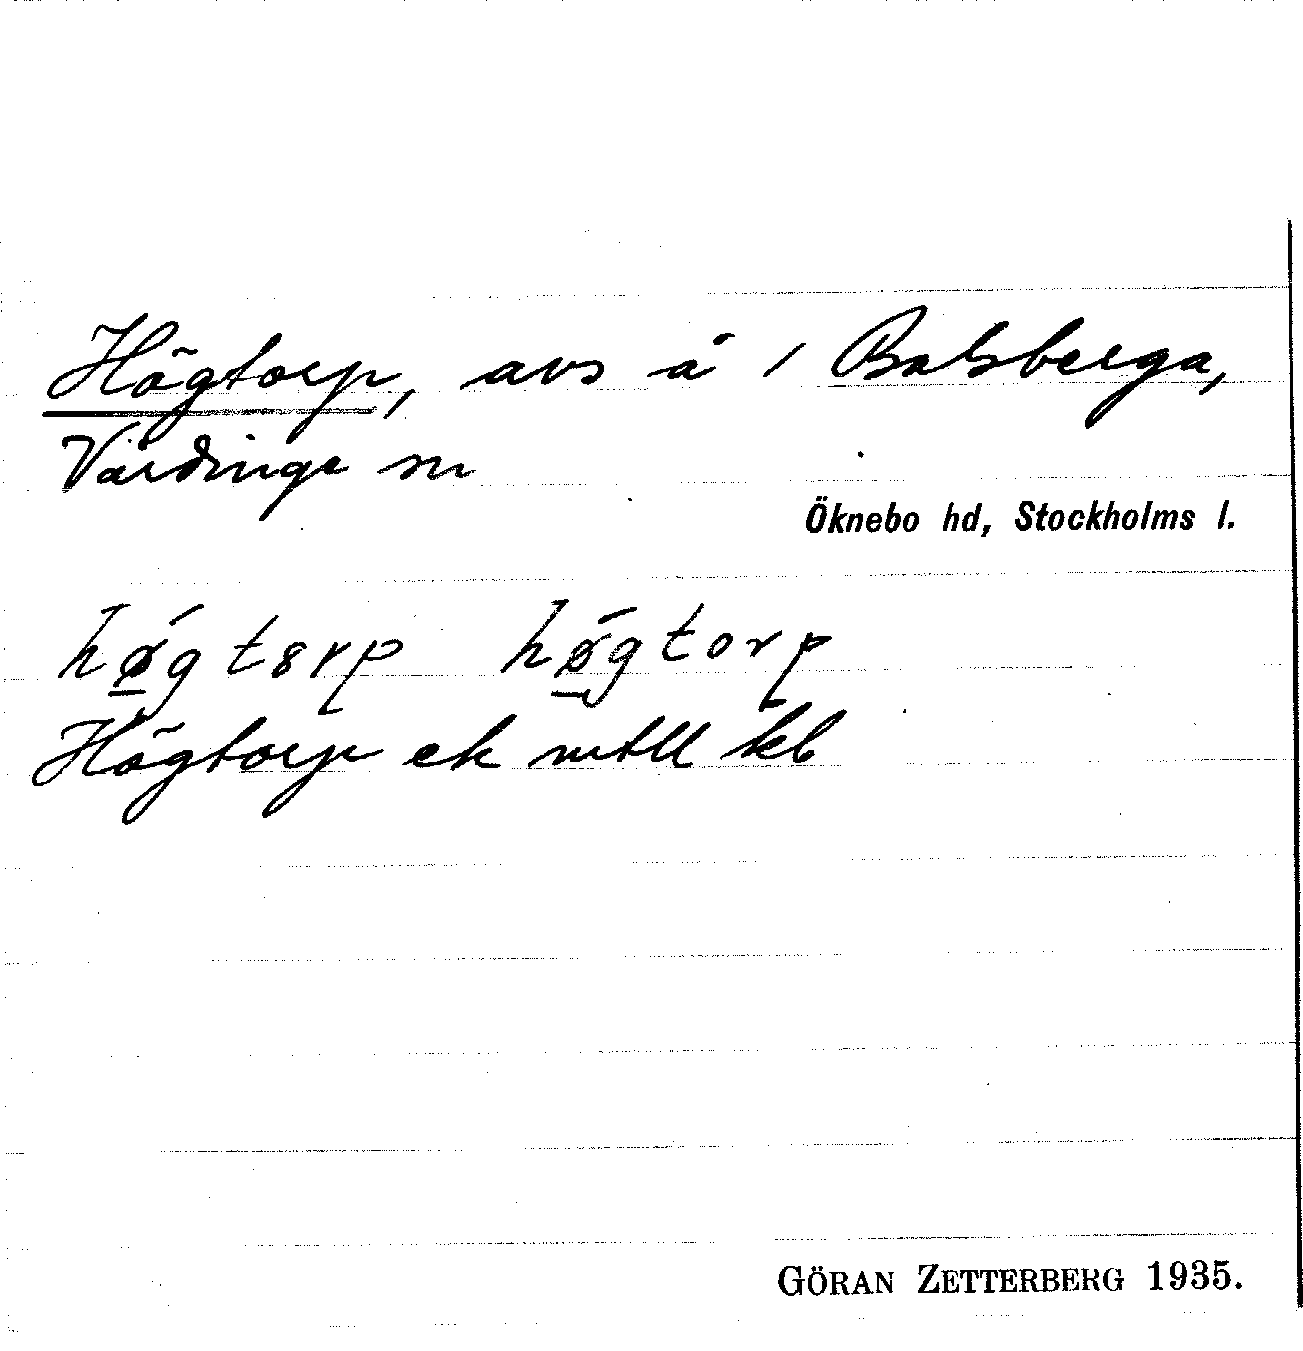 Högtorp, avs å 1 Balsberga,
Vårdinge sn
Öknebo hd, Stockholms l.
hǿ̱gtɞrp hǿ̱gtorp
Högtorp ek mtll kb
GÖRAN ZETTERBERG 1935.